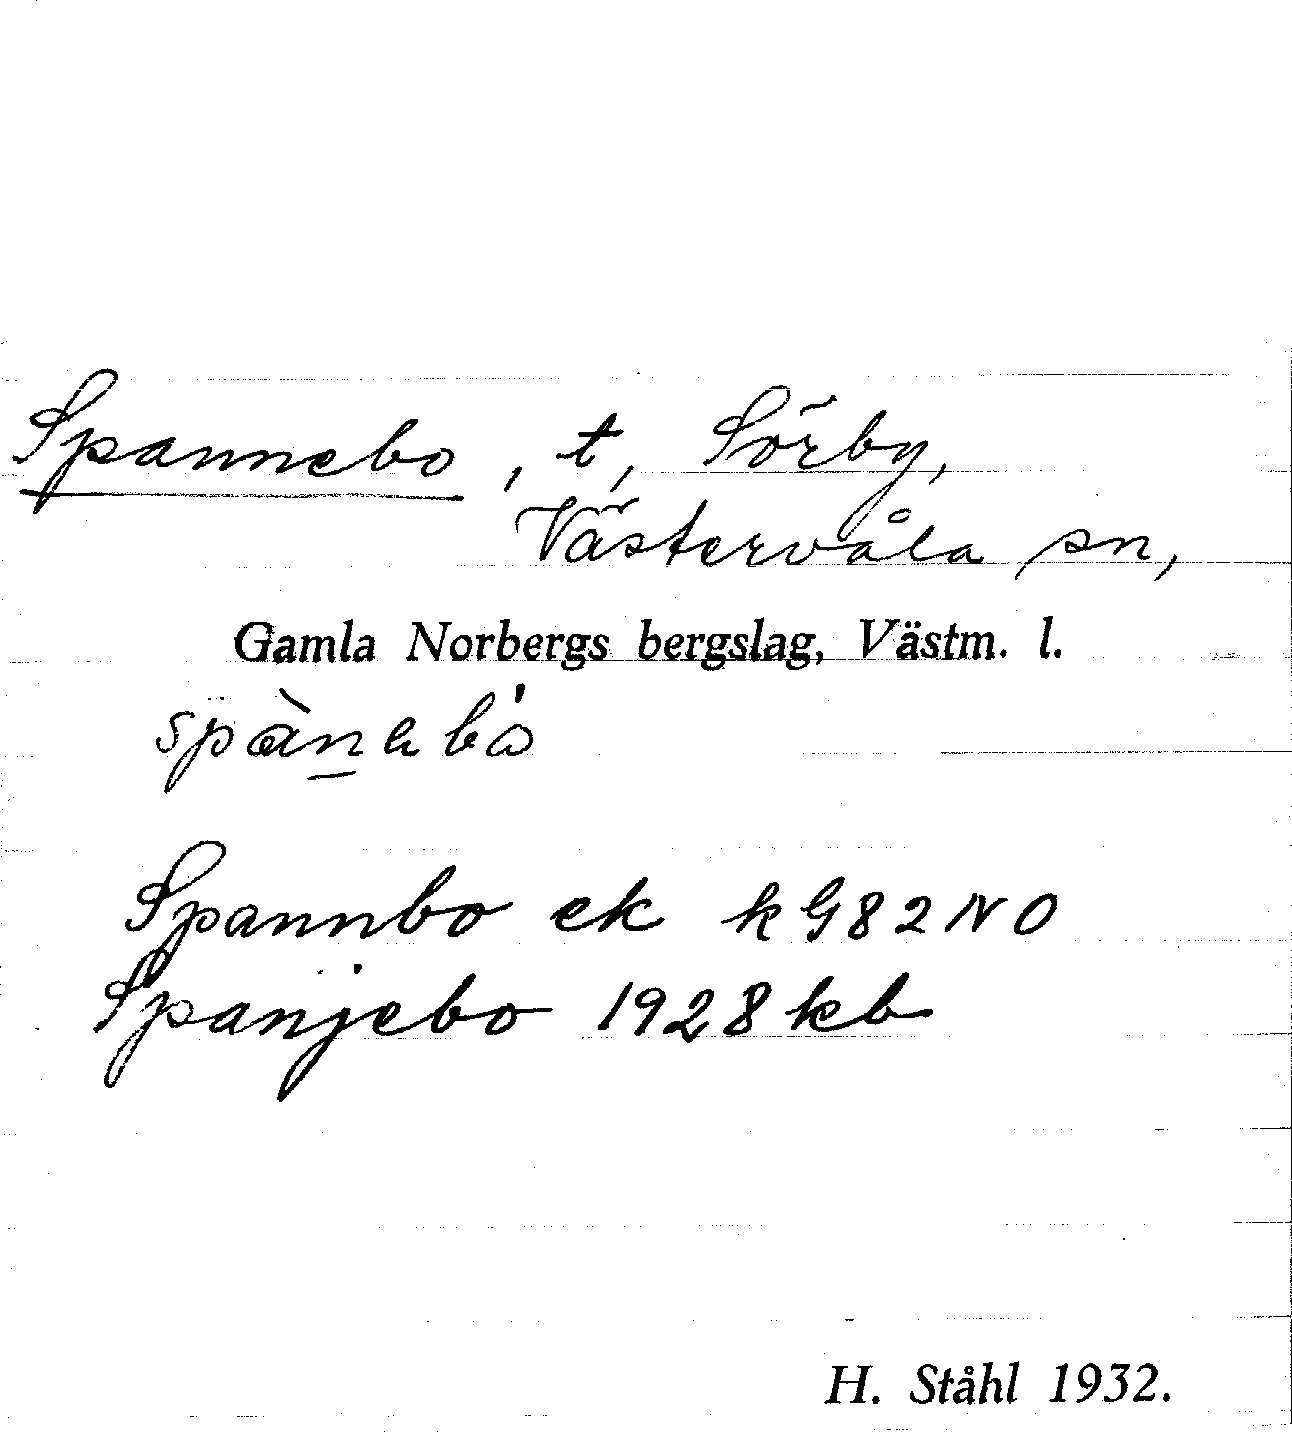 Spannebo, t, Sörby,
Västervåla sn,
Gamla Norbergs bergslag, Västm. l.
Spannbo ek kG82NO
Spanjebo 1928 kb
H. Ståhl 1932.